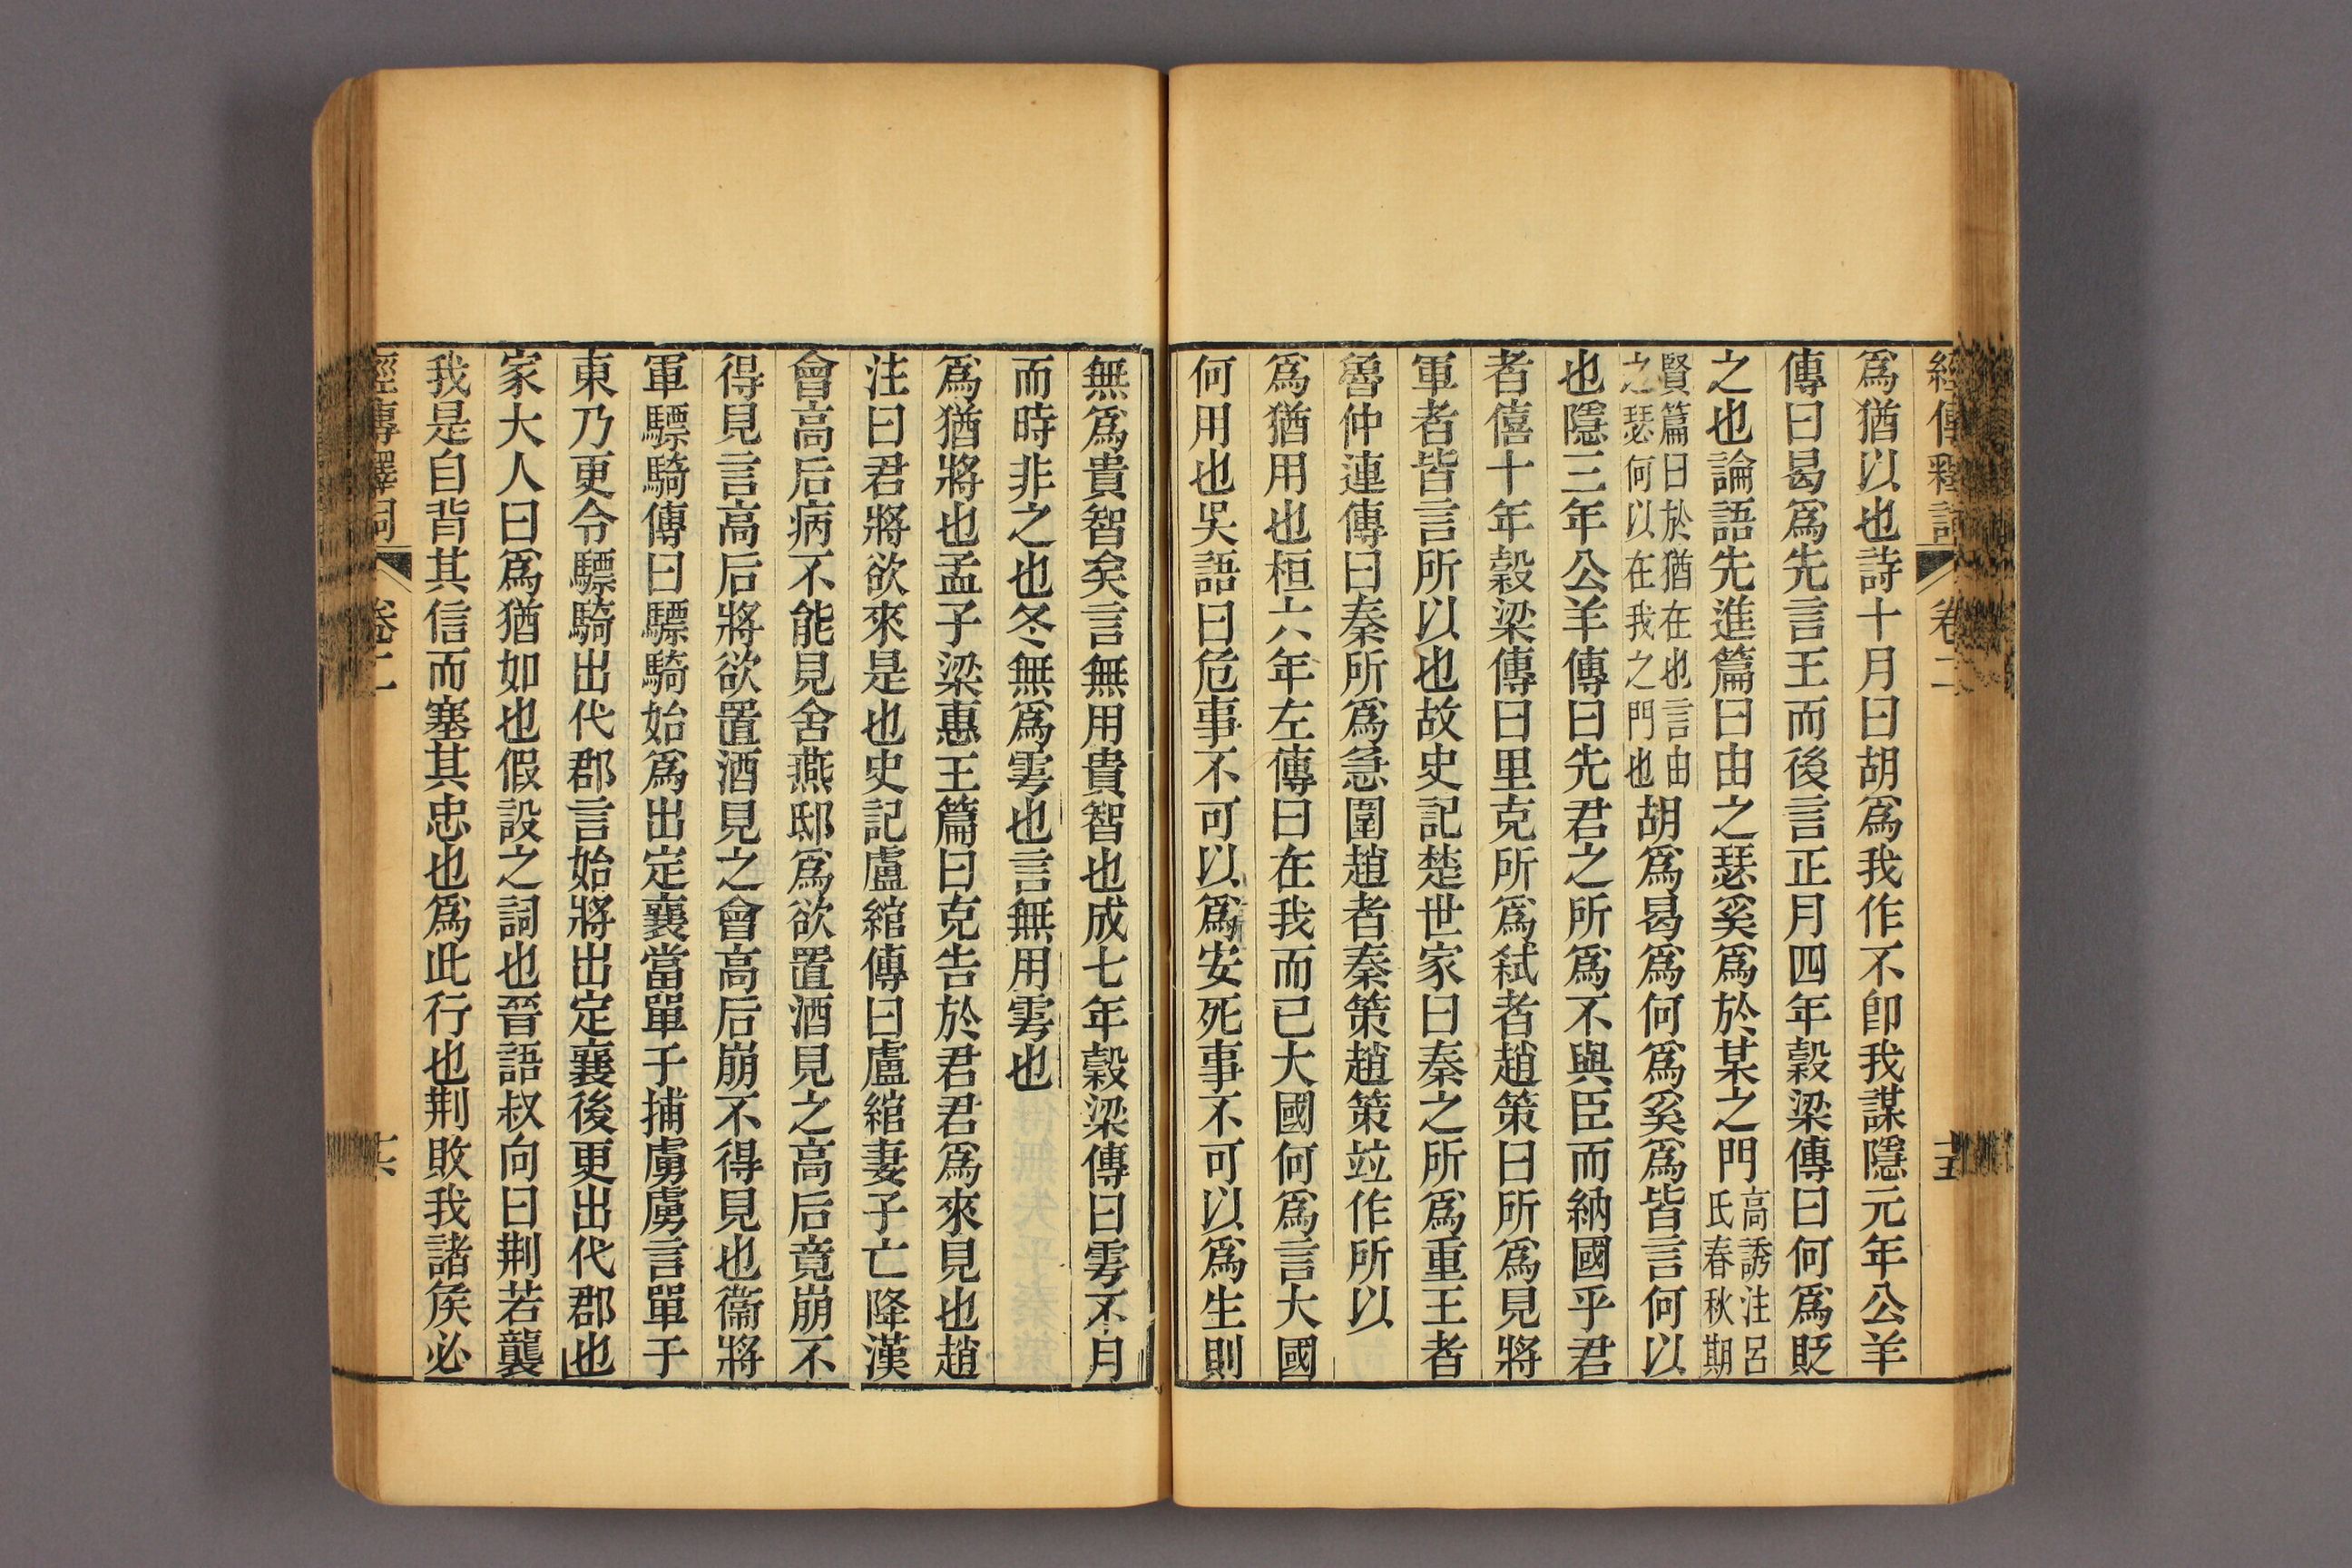 經傳釋詞 卷二 十五
爲猶以也詩十月曰胡爲我作不卽我謀隱元年公羊
傳曰曷爲先言王而後言正月四年穀梁傳曰何爲貶
之也論語先進篇曰由之瑟奚爲於某之門高誘注呂氏春秋期
賢篇曰於猶在也言由之瑟何以在我之門也胡爲曷爲何爲奚爲皆言何以
也隱三年公羊傳曰先君之所爲不與臣而納國乎君
者僖十年穀梁傳曰里克所爲弒者趙策曰所爲見將
軍者皆言所以也故史記楚世家曰秦之所爲重王者
魯仲連傳曰秦所爲急圍趙者秦策趙策竝作所以
爲猶用也桓六年左傳曰在我而已大國何爲言大國
何用也吳語曰危事不可以爲安死事不可以爲生則
無爲貴智矣言無用貴智也成七年穀梁傳曰雩不月
而時非之也冬無爲雩也言無用雩也
爲猶將也孟子梁惠王篇曰克告於君君爲來見也趙
注曰君將欲來是也史記盧綰傳曰盧綰妻子亡降漢
會高后病不能見舍燕邸爲欲置酒見之高后竟崩不
得見言高后將欲置酒見之會高后崩不得見也衞將
軍驃騎傳曰驃騎始爲出定襄當單于捕虜虜言單于
東乃更令驃騎出代郡言始將出定襄後更出代郡也
家大人曰爲猶如也假設之詞也晉語叔向曰荆若襲
我是自背其信而塞其忠也爲此行也荆敗我諸侯必
經傳釋詞 卷二 十六